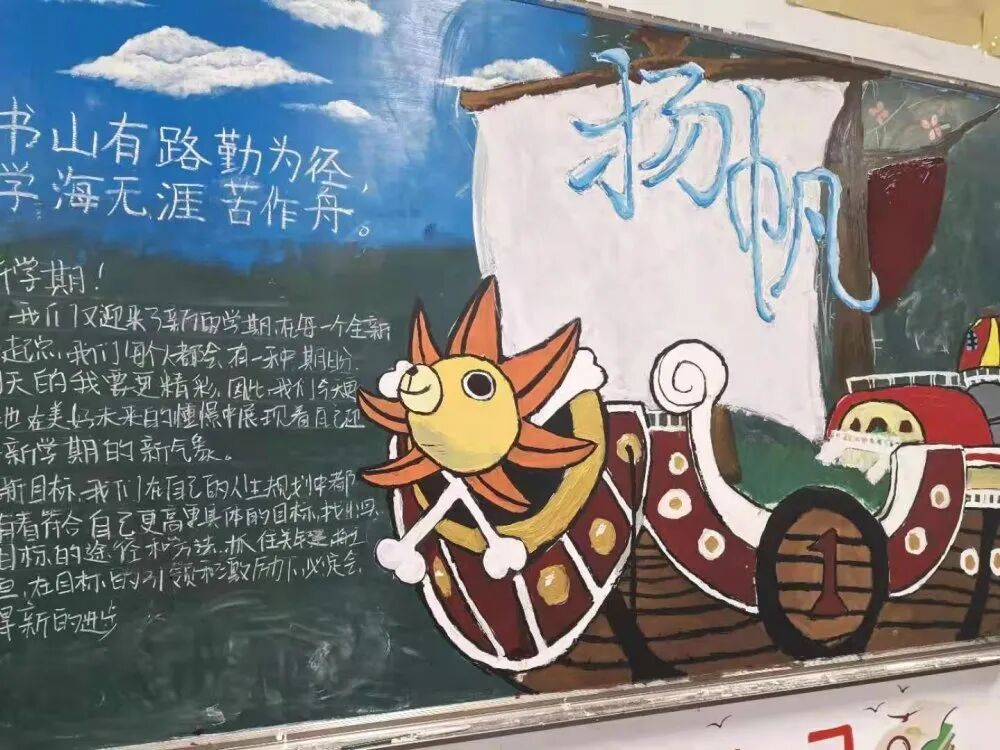 书山有路勤为径,
学海无涯苦作舟。
扬帆
新学期!
我们又迎来了新的学期,在每一个全新
起点,我们每个人都会有一种期盼.
天的我要更精彩,因此,我们今天要
也在美好未来的憧憬中展现着自己迎
新学期的新气象。
新目标,我们在自己的人生规划中都
有着符合自己更高更具体的目标,找出
目标的途径和方法,抓住关键
在目标的引领和激励下,必定会
得新的进步
1